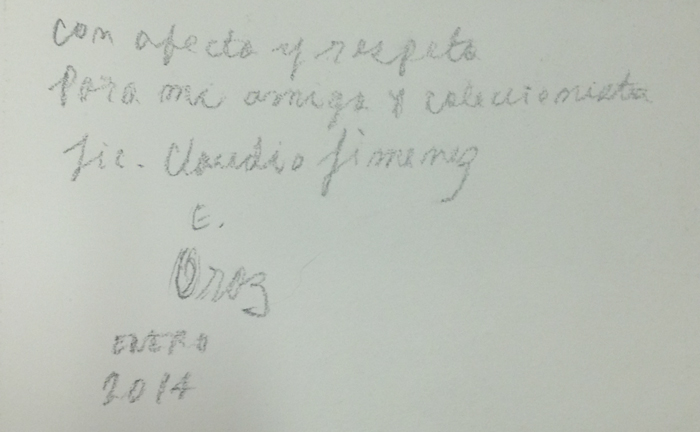 con afecto y respeto
Para mi amigo y coleccionista
Lic. Claudio Jimenez
E.
Oroz
ENERO
2014